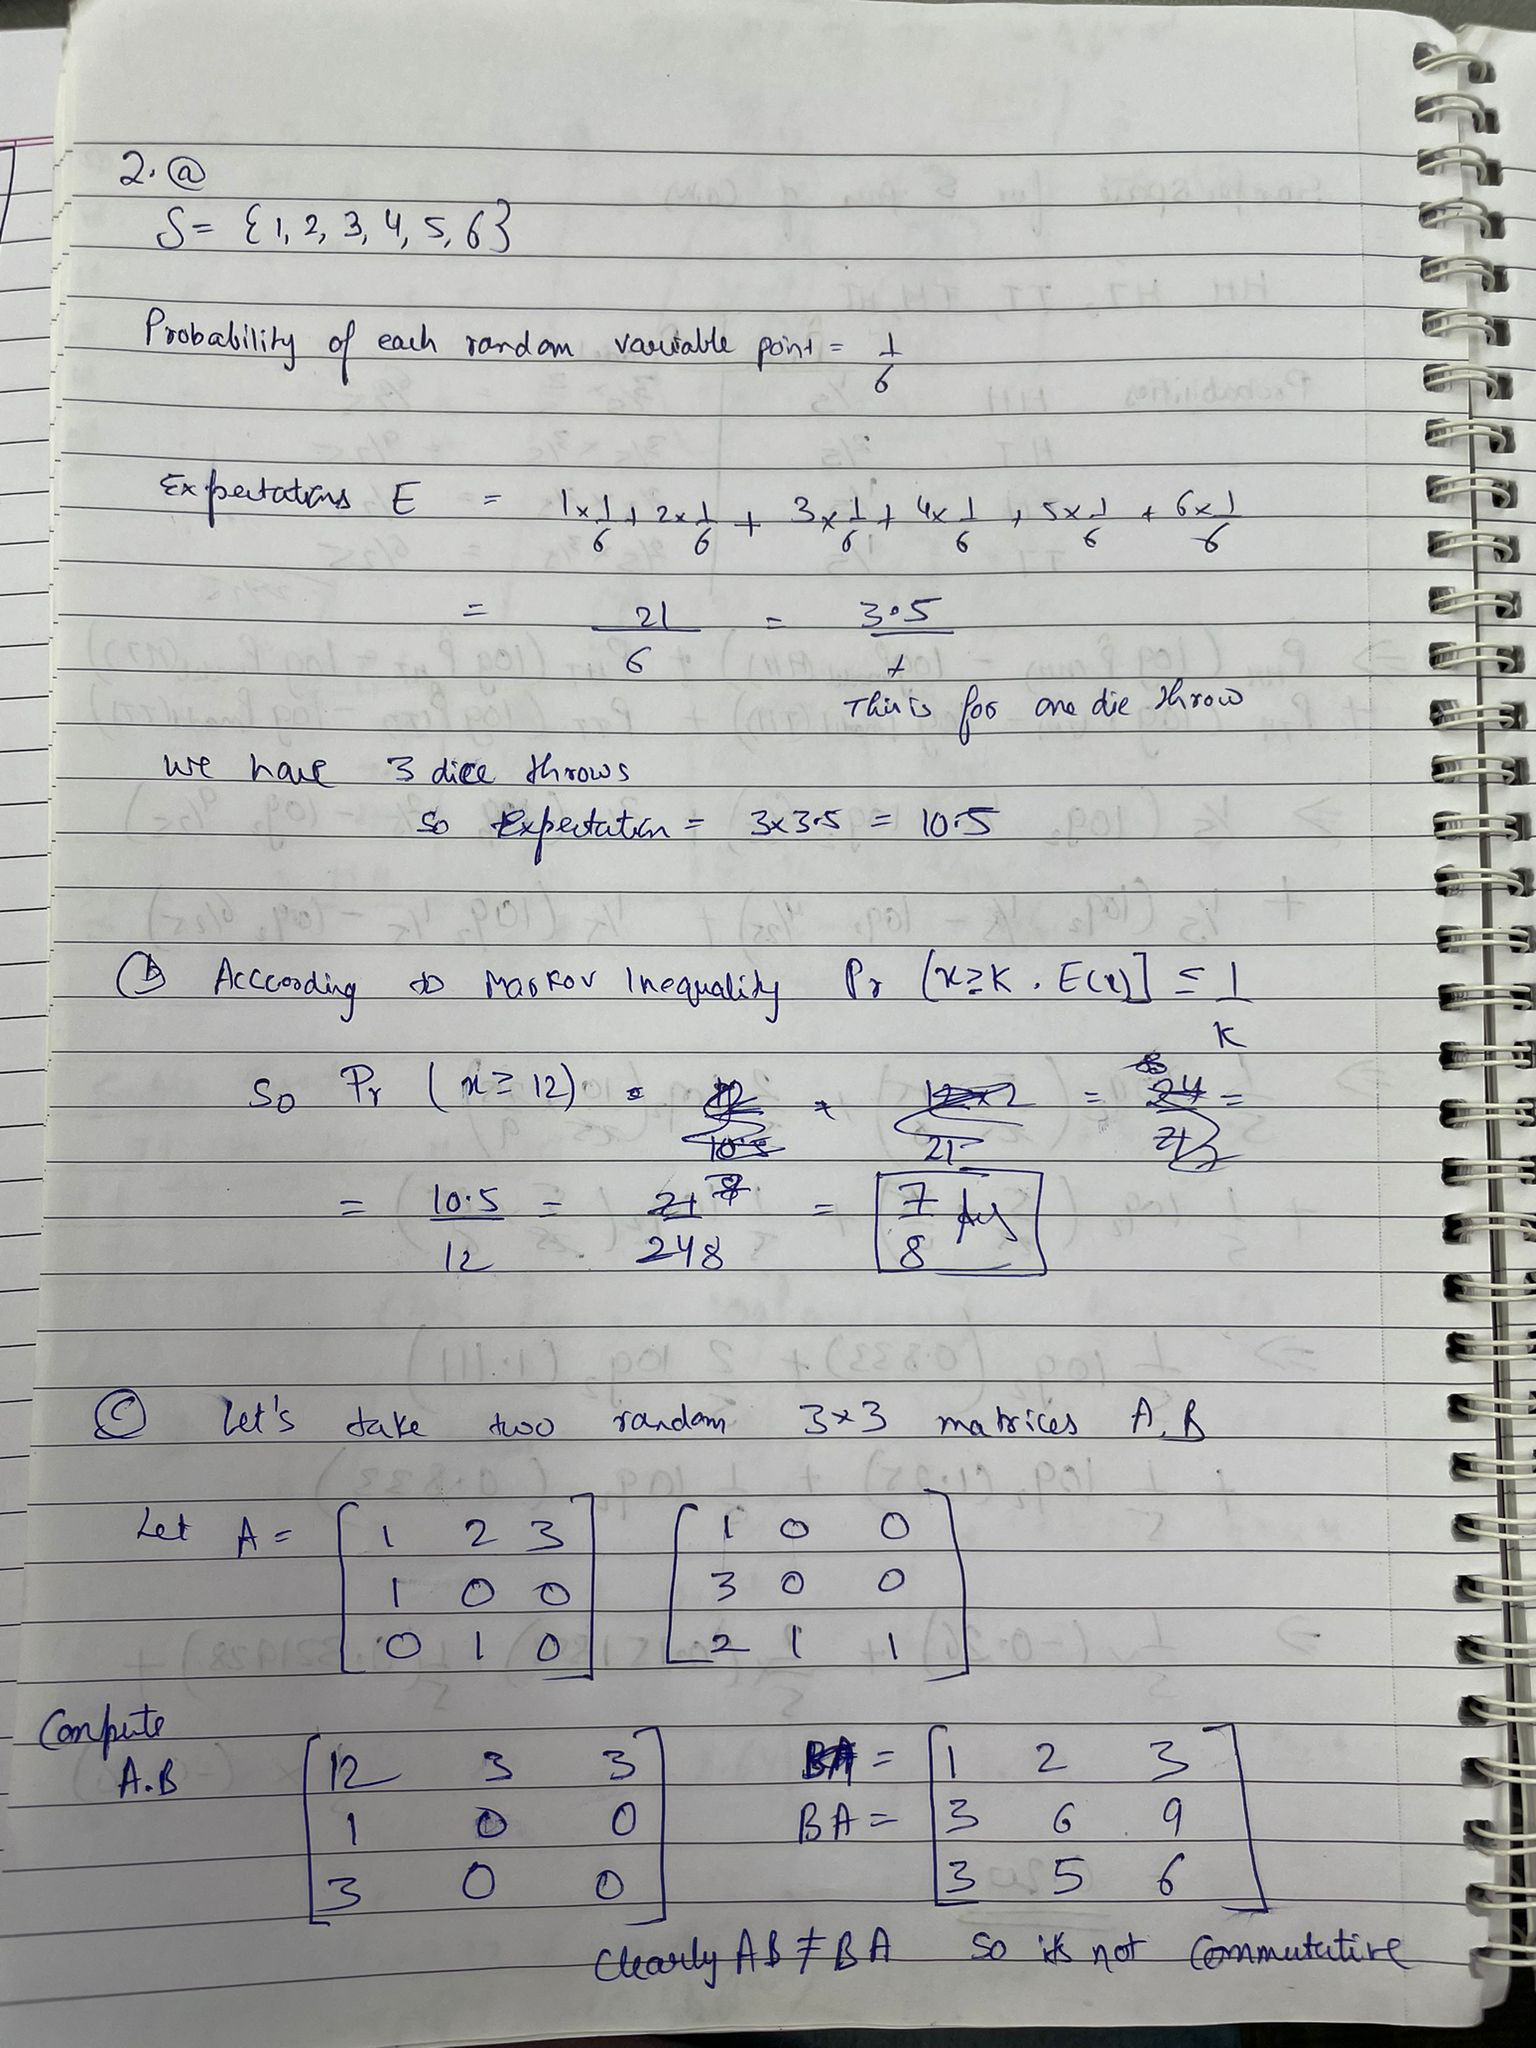 2. (a)
S = {1, 2, 3, 4, 5, 6}
Probability of each random variable point = 1/6
Expectations E = 1×1/6 + 2×1/6 + 3×1/6 + 4×1/6 + 5×1/6 + 6×1/6
= 21/6 = 3.5
This is for one die throw
We have 3 dice throws
So Expectation = 3×3.5 = 10.5
(b) According to Markov Inequality Pr [x ≥ K . E(x)] ≤ 1/K
So Pr (x ≥ 12) =
= 10.5/12 = 21/24 = 7/8 Ans
(c) Let's take two random 3×3 matrices A, B
Let A = [1 2 3] [1 0 0]
[1 0 0] [3 0 0]
[0 1 0] [2 1 1]
Compute
A.B [12 3 3] BA = [1 2 3]
[1 0 0] BA = [3 6 9]
[3 0 0] [3 5 6]
Clearly AB ≠ BA So it's not commutative